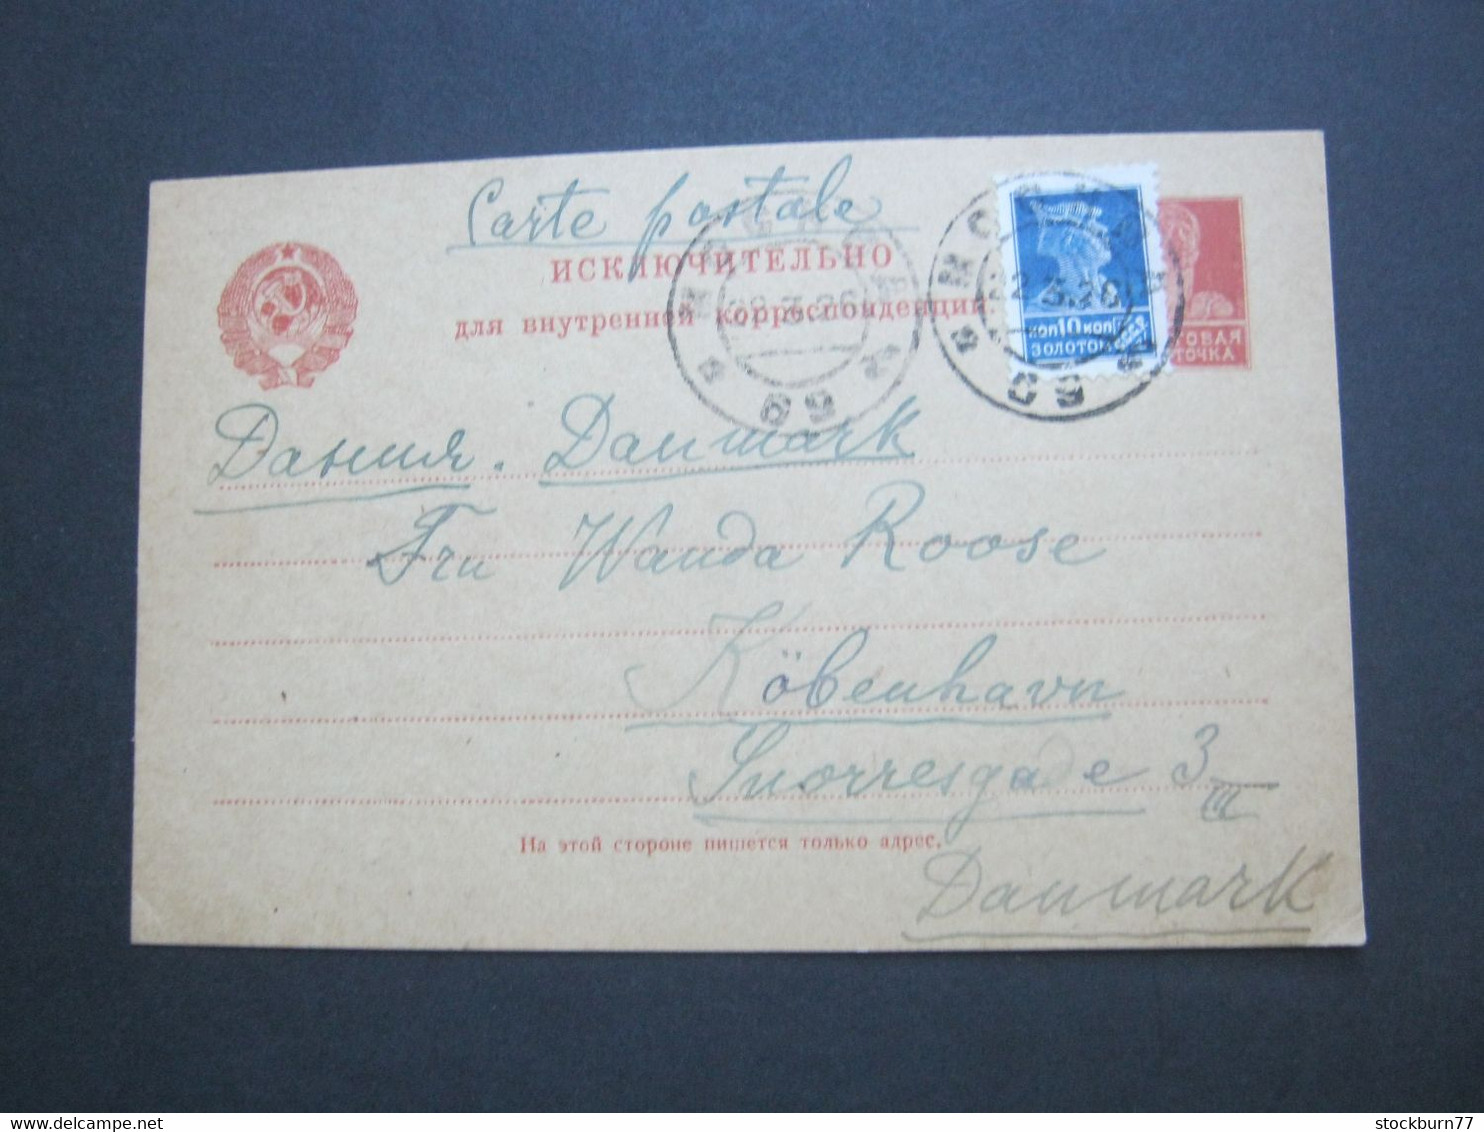 Carte postale
ИСКЛЮЧИТЕЛЬНО
для внутренней корреспонденции
МОСКВА
22.3.26
МОСКВА
22.3.26
коп 10 коп
ЗОЛОТОМ
СССР
ТОВАЯ
ТОЧКА
Дания. Danmark
Fru Wanda Roose
Köbenhavn
Snorresgade 3 III
На этой стороне пишется только адрес.
Danmark
stockburn77